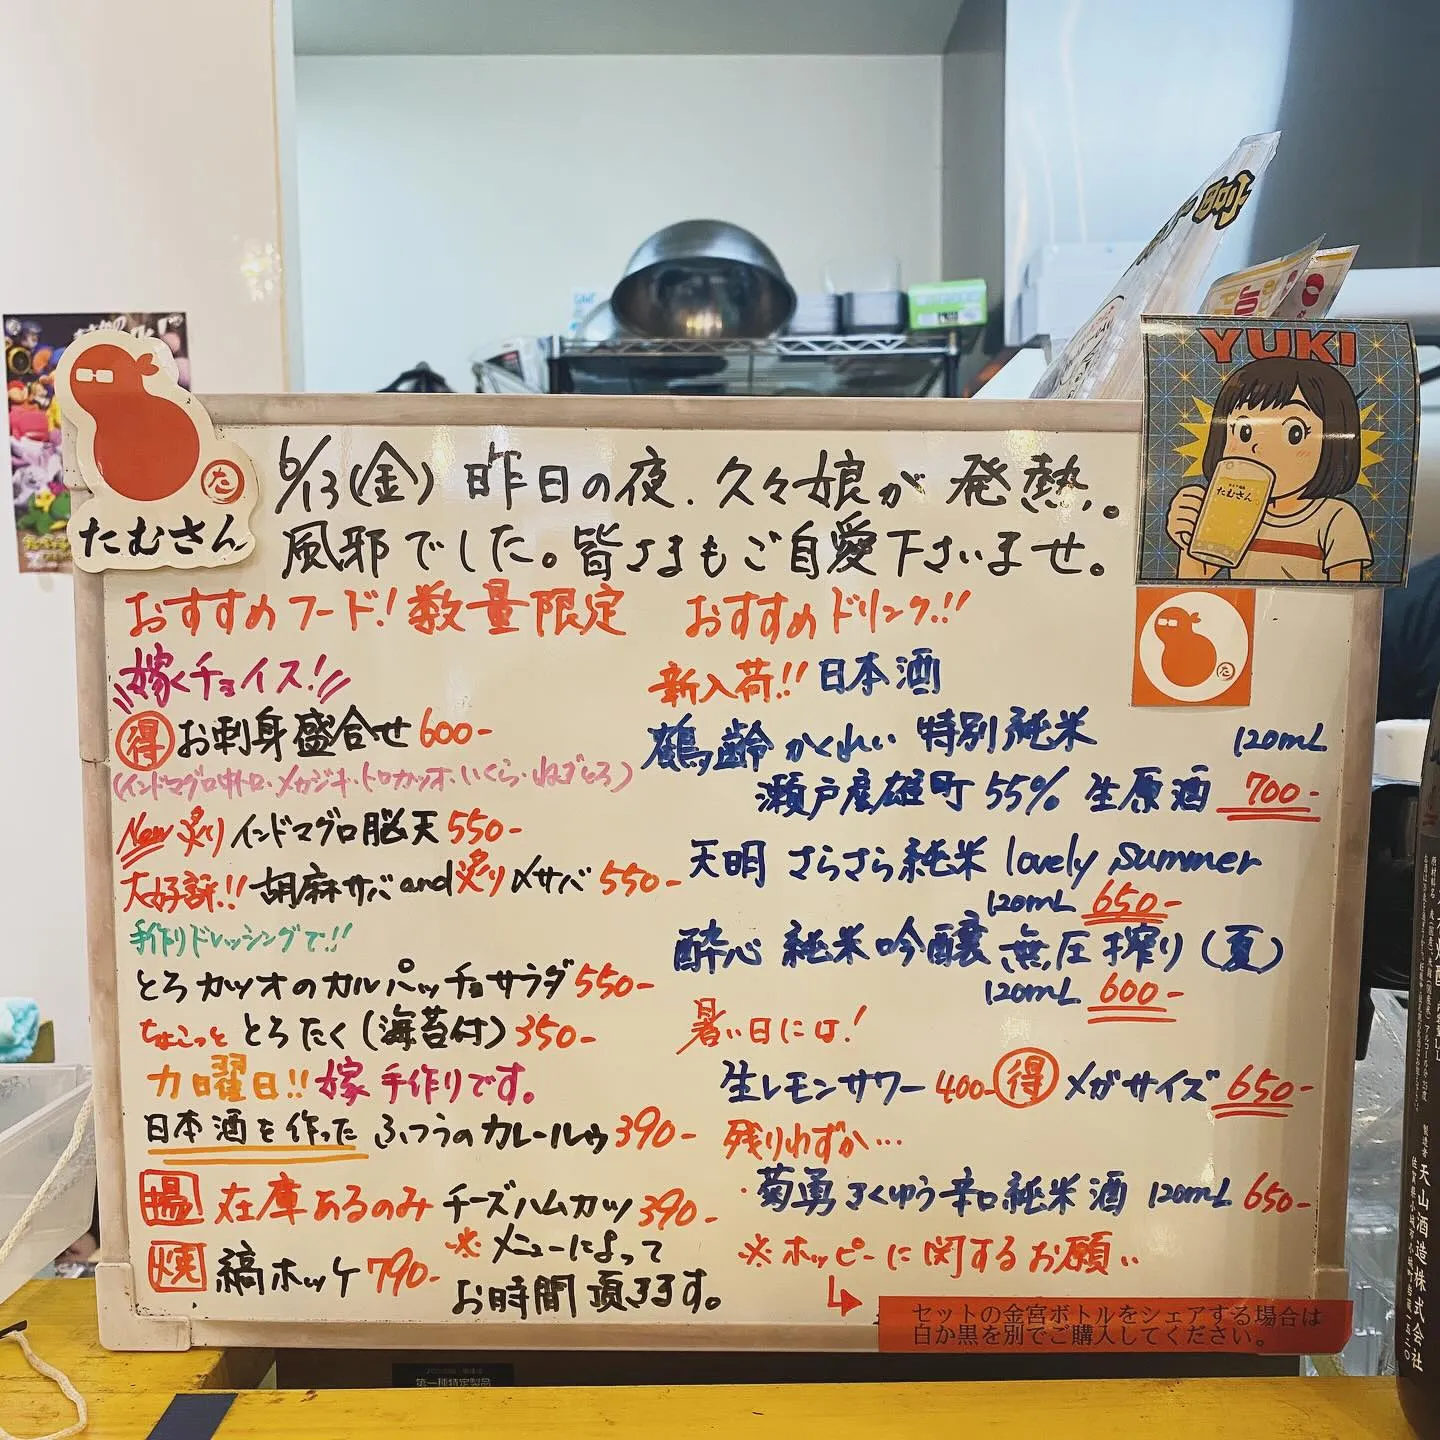 YUKI
たむさん
た
たむさん
6/13(金) 昨日の夜、久々娘が発熱。
風邪でした。皆さまもご自愛下さいませ。
おすすめフード!数量限定
嫁チョイス!
得 お刺身盛合せ 600-
(インドマグロ中トロ・メカジキ・トロカツオ・いくら・ねぎとろ)
New 炙りインドマグロ脳天 550-
大好評!! 胡麻サバand炙り〆サバ 550-
手作りドレッシングで!!
とろカツオのカルパッチョサラダ 550-
ちょこっと とろたく(海苔付) 350-
力曜日!! 嫁手作りです。
日本酒を作った ふつうのカレールゥ 390-
揚 在庫あるのみ チーズハムカツ 390-
焼 縞ホッケ 790-
※メニューによって
お時間頂きます。
おすすめドリンク!!
新入荷!! 日本酒
鶴齢 かくれい 特別純米 120mL
瀬戸産雄町 55% 生原酒 700-
天明 さらさら純米 lovely summer
120mL 650-
酔心 純米吟醸 無圧搾り(夏)
120mL 600-
暑い日には!
生レモンサワー 400- 得 メガサイズ 650-
残りわずか…
・菊勇 きくゆう 辛口純米酒 120mL 650-
※ホッピーに関するお願い
セットの金宮ボトルをシェアする場合は
白か黒を別でご購入してください。
た
第一種特定製品
製造者 天山酒造株式会社